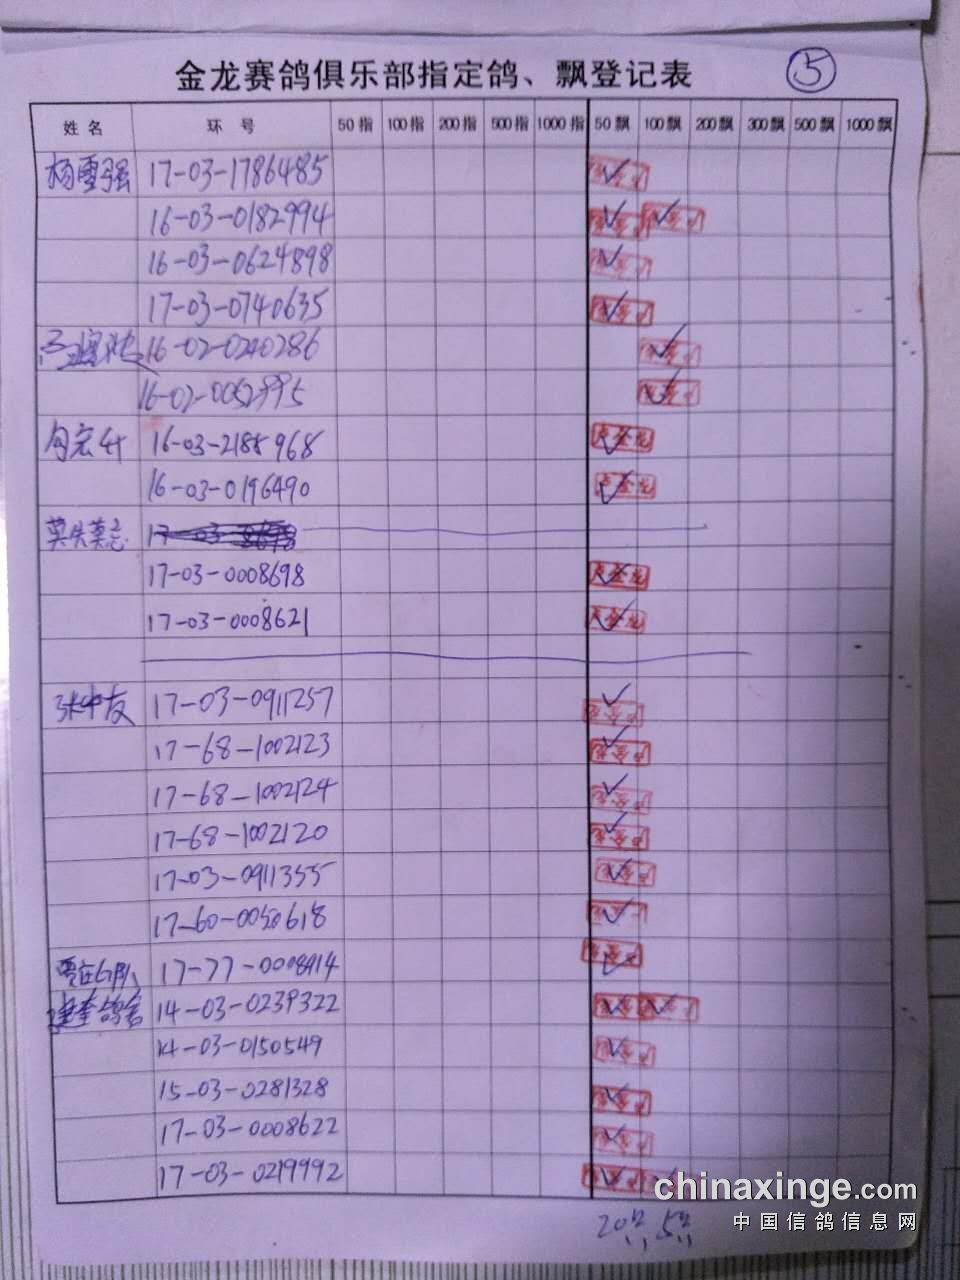 金龙赛鸽俱乐部指定鸽、飘登记表 ⑤
姓名 环号 50指 100指 200指 500指 1000指 50飘 100飘 200飘 300飘 500飘 1000飘
杨雪强 17-03-1786485 ✓
16-03-0182994 ✓ ✓
16-03-0624898 ✓
17-03-0740635 ✓
16-02-0240286 ✓
16-02-0052995 ✓
16-03-2188968 ✓
16-03-0196490 ✓
莫失莫忘
17-03-0008698 ✓
17-03-0008621 ✓
张中友 17-03-0911257 ✓
17-68-1002123 ✓
17-68-1002124 ✓
17-68-1002120 ✓
17-03-0911355 ✓
17-60-0050618 ✓
17-77-0008914 ✓
建奎鸽舍 14-03-0239322 ✓ ✓
14-03-0150549 ✓
15-03-0281328 ✓
17-03-0008622 ✓
17-03-0219992 ✓
chinaxinge.com
中国信鸽信息网